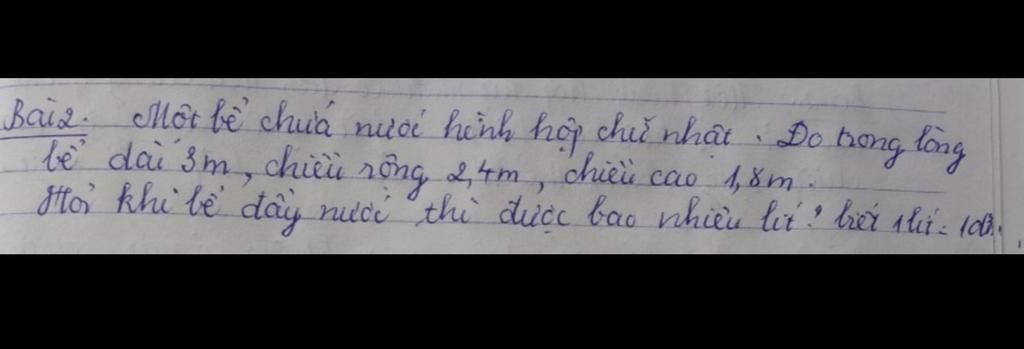 Bài 2. Một bể chứa nước hình hộp chữ nhật. Đo trong lòng
bể dài 3m, chiều rộng 2,4m, chiều cao 1,8m.
Hỏi khi bể đầy nước thì được bao nhiêu lít? biết 1 lít =